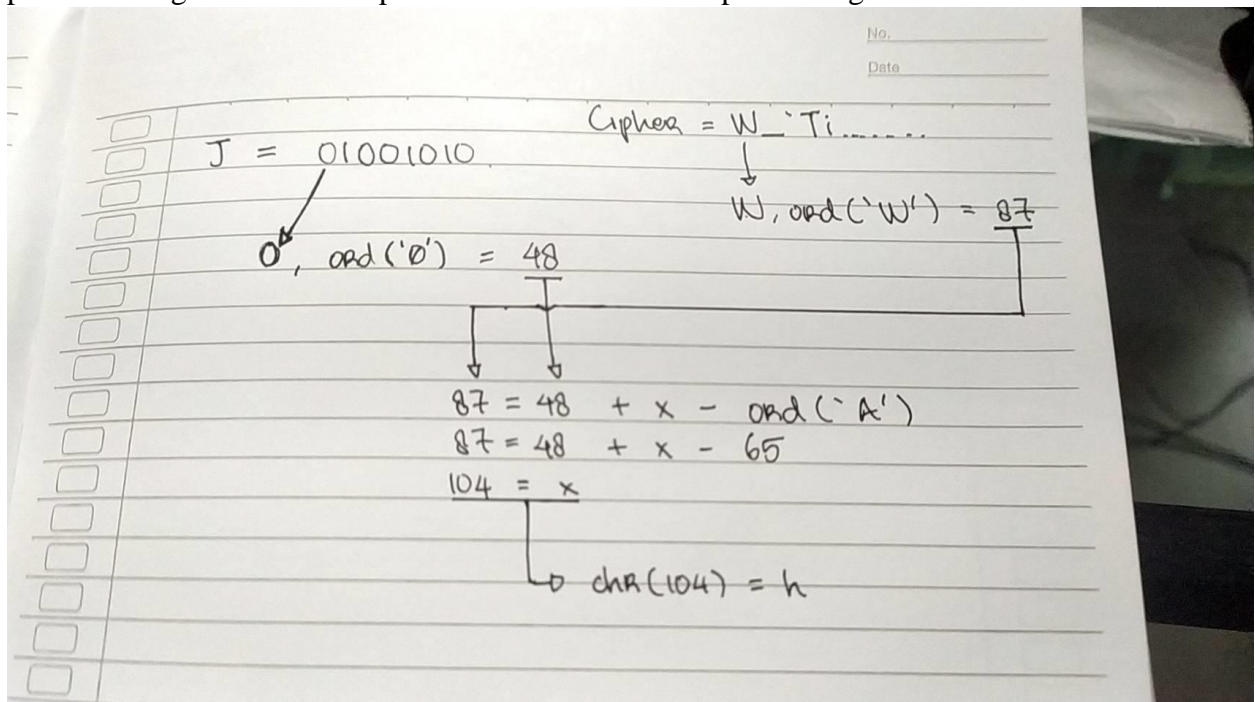 No.
Date
Cipher = W_`Ti.......
J = 01001010
W, ord('W') = 87
0, ord('0') = 48
87 = 48 + x - ord('A')
87 = 48 + x - 65
104 = x
chr(104) = h